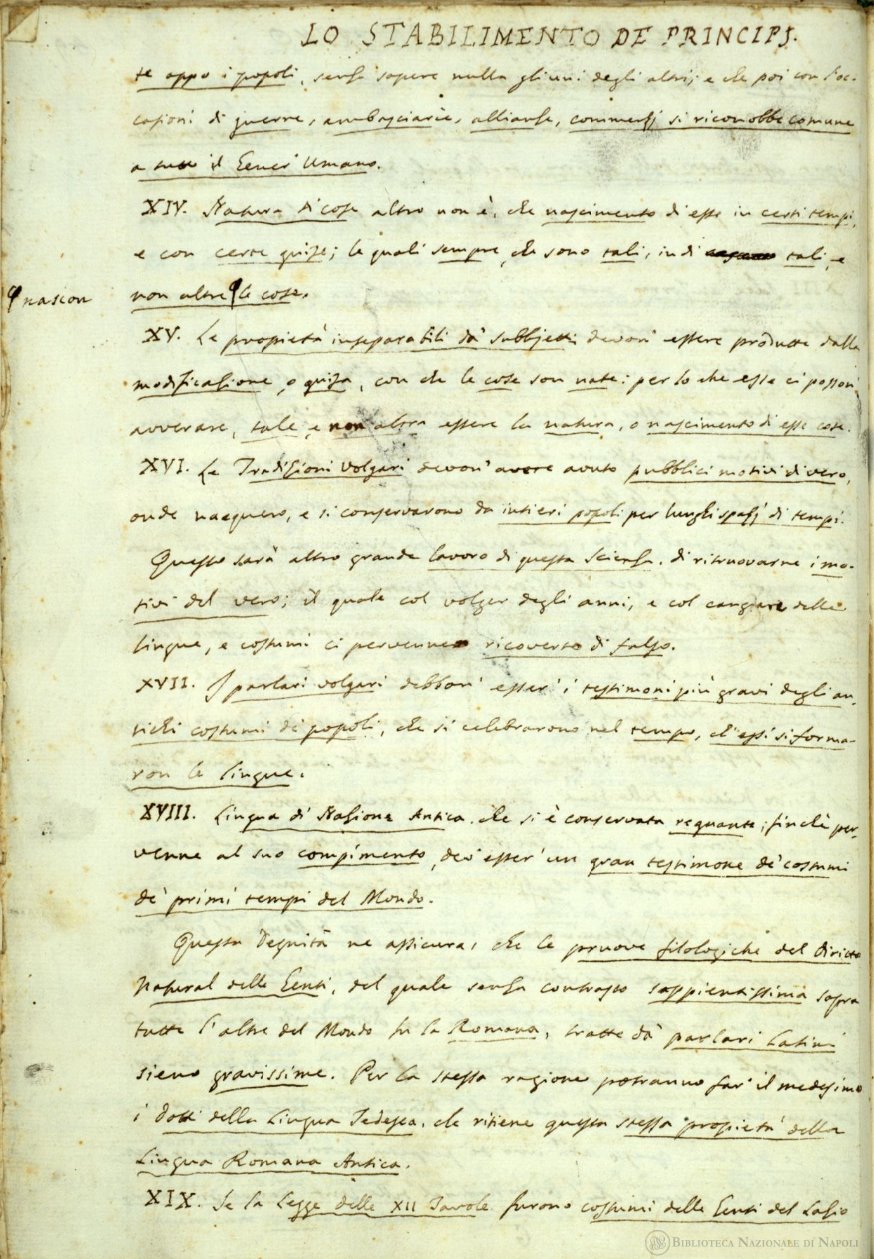 LO STABILIMENTO DE PRINCIPJ.
te appo i popoli, senza sapere nulla gli uni degli altri; e che poi con l'oc-
casioni di guerre, ambasciarie, allianze, commerzj si riconobbe comune
a tutto il Gener' Umano.
XIV. Natura di cose altro non è, che nascimento di esse in certi tempi,
e con certe guise; le quali sempre, che sono tali, indi tali, e
non altre le cose.
nascon
XV. Le propietà inseparabili da' subbjetti devon' essere produtte dalla
modificazione, o guisa, con che le cose son nate: per lo che esse ci posson'
avverare, tale, e non altra essere la natura, o nascimento di esse cose.
XVI. Le Tradizioni volgari devon' avere avuto pubblici motivi di vero,
onde nacquero, e si conservarono da intieri popoli per lunghi spazj di tempi.
Questo sarà altro grande lavoro di questa Scienza, di ritruovarne i mo-
tivi del vero; il quale col volger degli anni, e col cangiare delle
lingue, e costumi ci pervenne ricoverto di falso.
XVII. I parlari volgari debbon' esser' i testimoni più gravi degli an-
tichi costumi de' popoli, che si celebrarono nel tempo, ch'essi si forma-
ron le lingue.
XVIII. Lingua di Nazione Antica, che si è conservata regnante; finchè per-
venne al suo compimento, dev' esser' un gran testimone de' costumi
de' primi tempi del Mondo.
Questa Degnità ne assicura, che le pruove filologiche del Diritto
Natural delle Genti, del quale senza contrasto sappientissima sopra
tutte l'altre del Mondo fu la Romana, tratte da' parlari Latini
sieno gravissime. Per la stessa ragione potranno far' il medesimo
i dotti della Lingua Tedesca, che ritiene questa stessa propietà della
Lingua Romana Antica.
XIX. Se la Legge delle XII Tavole furono costumi delle Genti del Lazio
BIBLIOTECA NAZIONALE DI NAPOLI